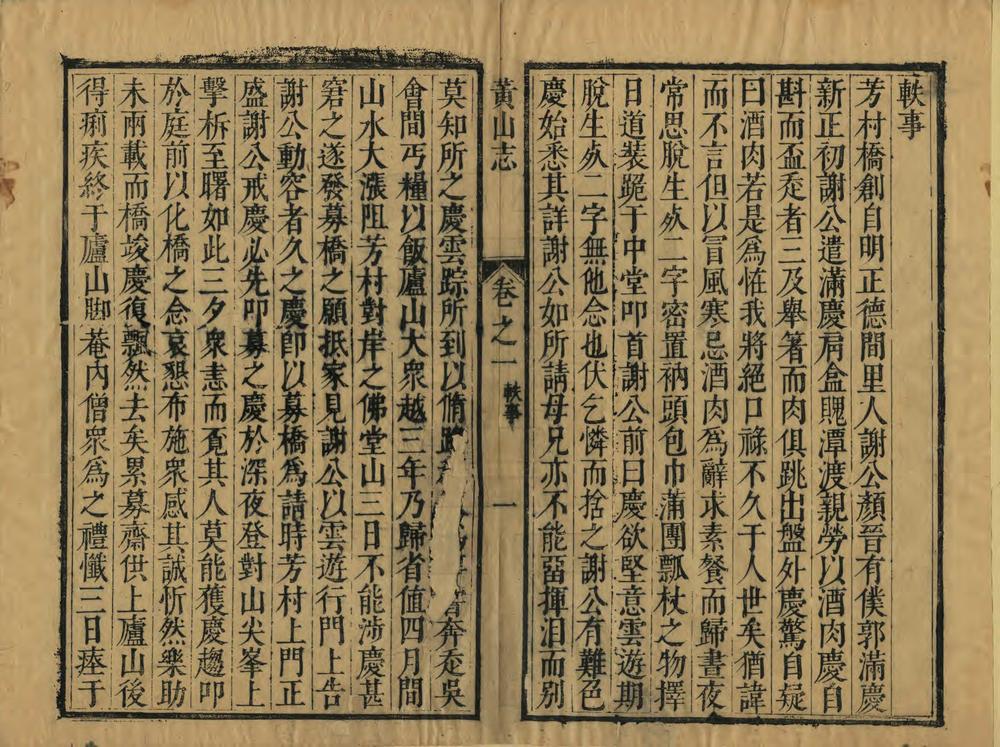 軼事
芳村橋創自明正德間里人謝公顏晉有僕郭滿慶
新正初謝公遣滿慶肩盒餽潭渡親勞以酒肉慶自
斟而盃赱者三及舉箸而肉俱跳出盤外慶驚自疑
曰酒肉若是爲恠我將絕口祿不久于人世矣猶諱
而不言但以冒風寒忌酒肉爲辭求素餐而歸晝夜
常思脫生死二字密置衲頭包巾蒲團瓢杖之物擇
日道裝跪于中堂叩首謝公前曰慶欲堅意雲遊期
脫生死二字無他念也伏乞憐而捨之謝公有難色
慶始悉其詳謝公如所請母兄亦不能畱揮泪而別
黃山志
卷之一
軼事
一
莫知所之慶雲踪所到以脩 奔赱吳
會間丐糧以飯廬山大衆越三年乃歸省值四月間
山水大漲阻芳村對岸之佛堂山三日不能涉慶甚
窘之遂發募橋之願抵家見謝公以雲遊行門上告
謝公動容者久之慶卽以募橋爲請時芳村上門正
盛謝公戒慶必先叩募之慶於深夜登對山尖峯上
擊柝至曙如此三夕衆恚而覔其人莫能獲慶趨叩
於庭前以化橋之念哀懇布施衆感其誠忻然樂助
未兩載而橋竣慶復飄然去矣累募齋供上廬山後
得痢疾終于廬山脚菴內僧衆爲之禮懺三日瘞于